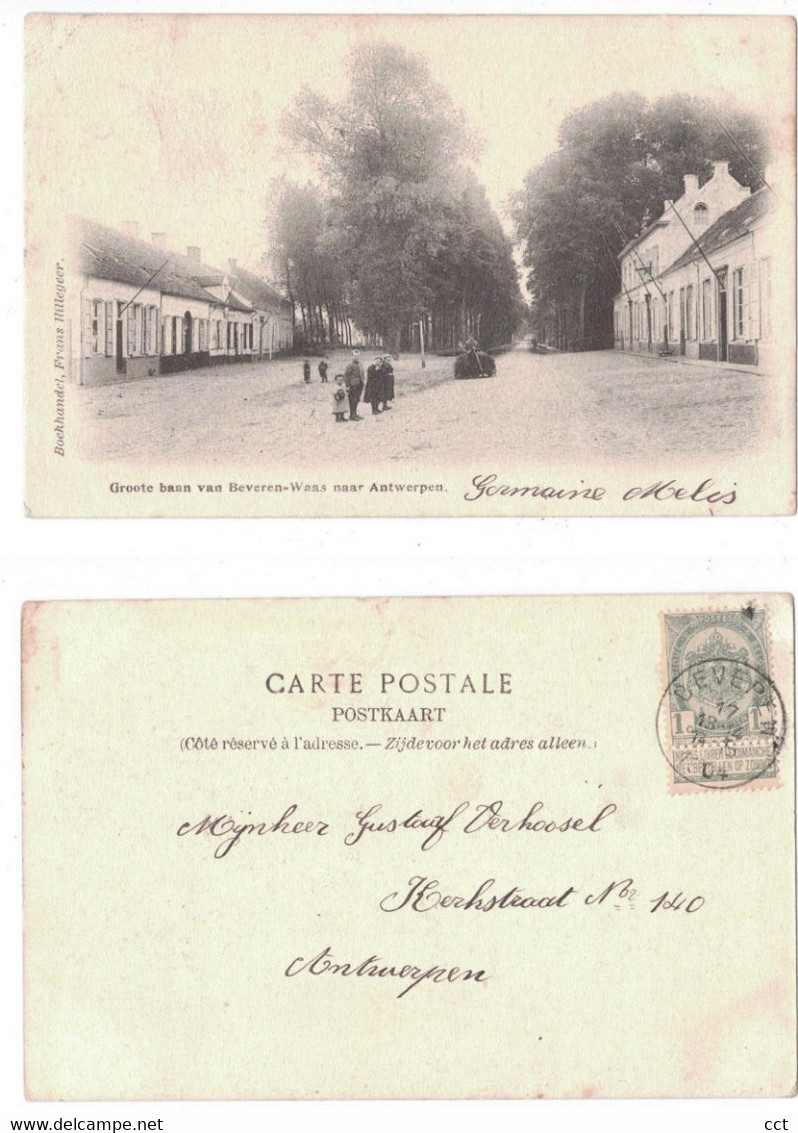 Boekhandel, Frans Hillegeer.
Groote baan van Beveren-Waas naar Antwerpen.
Germaine Melis
CARTE POSTALE
POSTKAART
(Côté réservé à l'adresse. — Zijde voor het adres alleen.)
POSTES
1 1
NE PAS LIVRER LE DIMANCHE
NIET BESTELLEN OP ZONDAG
17
04
Mijnheer Gustaaf Verhoosel
Kerkstraat Nbr 140
Antwerpen
cct